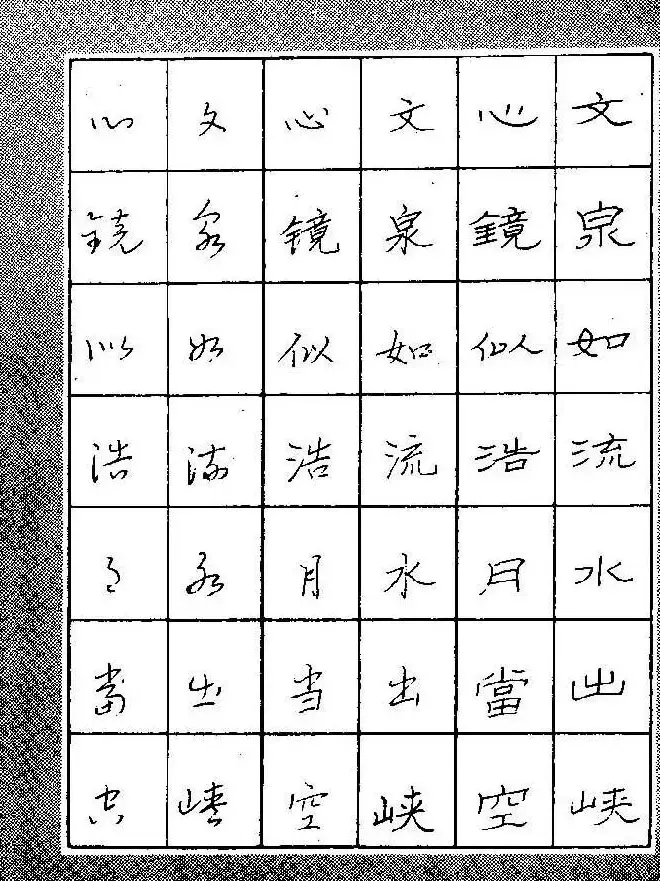 文泉如流水出峡
心鏡似浩月當空
文泉如流水出峡
心镜似浩月当空
文泉如流水出峡
心鏡似浩月當空